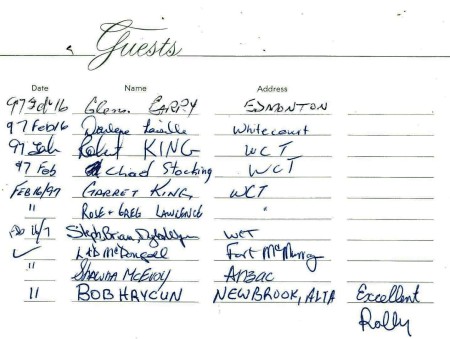 Guests
Date Name Address
97 Feb 16 Glenn EARRY EDMONTON
97 Feb 16 Darlene Whitecourt
97 Feb Robert KING WCT
97 Feb Chad Stocking WCT
FEB 16/97 GARRET KING WCT
" ROSE + GREG LAWRENCE "
16/7 Steph Brian WCT
L + D McDougall Fort McMurray
" SHAWNA McEVOY ANZAC
" BOB HAYCUN NEWBROOK, ALTA Excellent
Rolly